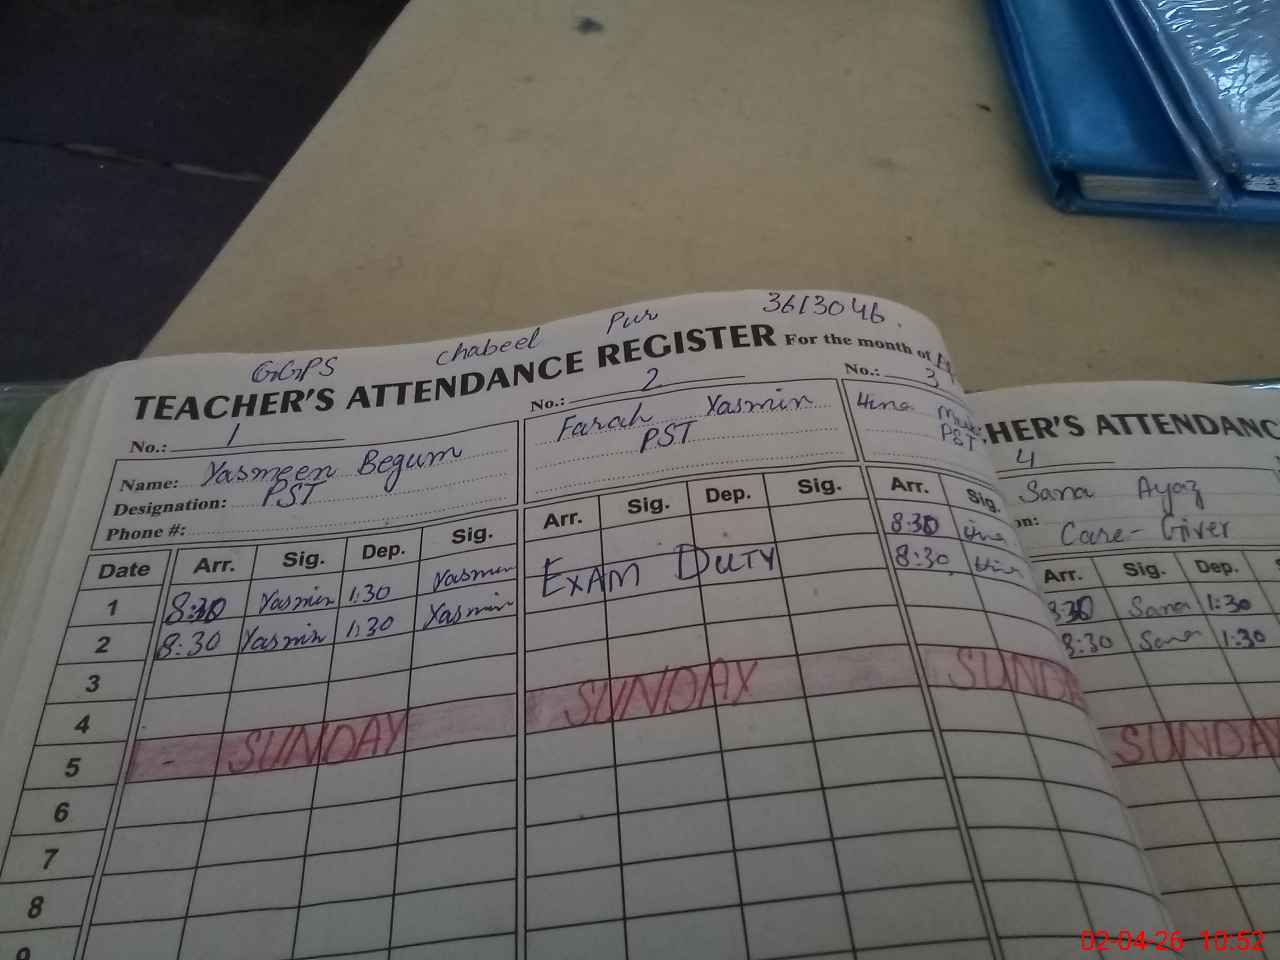 GGPS chabeel Pur 3613046.
TEACHER'S ATTENDANCE REGISTER For the month of
No.: 1
Name: Yasmeen Begum
Designation: PST
Phone #:
No.: 2
Farah Yasmin
PST
No.: 3
Hina
PST
Date Arr. Sig. Dep. Sig. Arr. Sig. Dep. Sig. Arr. Sig.
1 8:30 Yasmin 1:30 Yasmin EXAM DUTY 8:30
2 8:30 Yasmin 1:30 Yasmin 8:30
3
4
5 - SUNDAY SUNDAY SUNDA
6
7
8
9
HER'S ATTENDANC
4
Sana Ayaz
on: Care-Giver
Arr. Sig. Dep.
8:30 Sana 1:30
8:30 Sana 1:30
SUNDAY
02-04-26 10:52